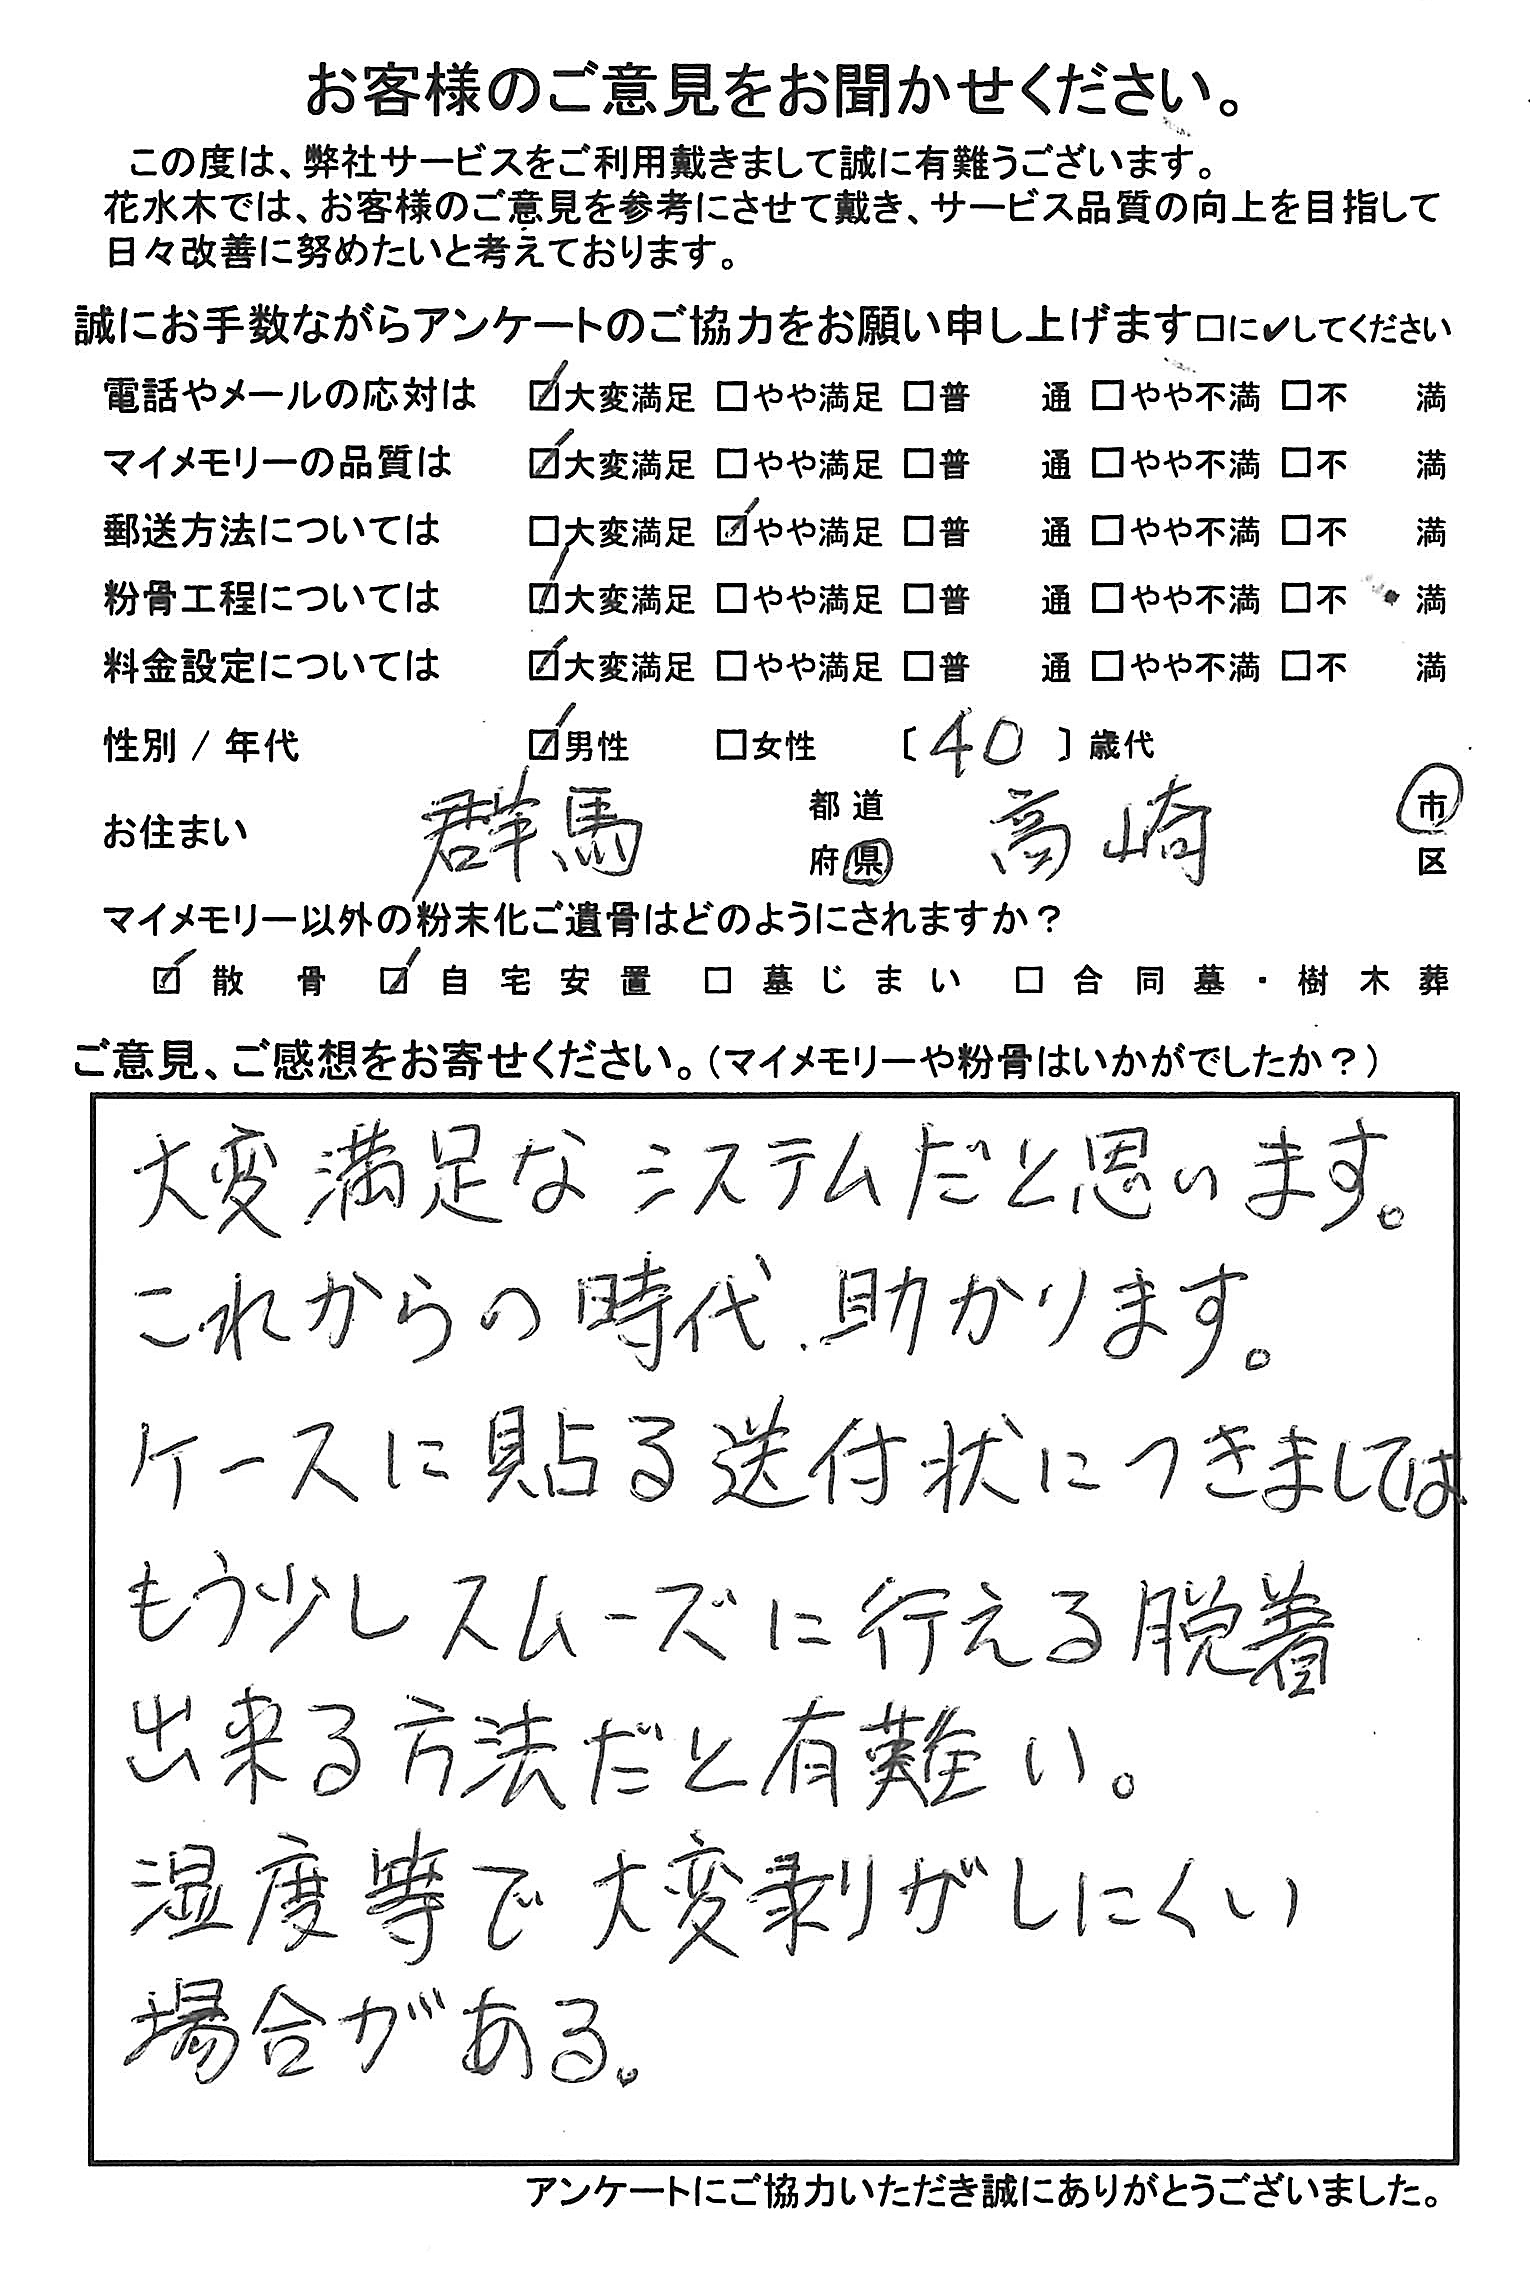 お客様のご意見をお聞かせください。
この度は、弊社サービスをご利用戴きまして誠に有難うございます。
花水木では、お客様のご意見を参考にさせて戴き、サービス品質の向上を目指して
日々改善に努めたいと考えております。
誠にお手数ながらアンケートのご協力をお願い申し上げます□に✔してください
電話やメールの応対は ☑大変満足 □やや満足 □普 通 □やや不満 □不 満
マイメモリーの品質は ☑大変満足 □やや満足 □普 通 □やや不満 □不 満
郵送方法については □大変満足 ☑やや満足 □普 通 □やや不満 □不 満
粉骨工程については ☑大変満足 □やや満足 □普 通 □やや不満 □不 満
料金設定については ☑大変満足 □やや満足 □普 通 □やや不満 □不 満
性別 / 年代 ☑男性 □女性 〔 40 〕歳代
お住まい 群馬 都道府県 高崎 市区
マイメモリー以外の粉末化ご遺骨はどのようにされますか？
☑ 散骨 ☑ 自宅安置 □ 墓じまい □ 合同墓・樹木葬
ご意見、ご感想をお寄せください。(マイメモリーや粉骨はいかがでしたか？)
大変満足なシステムだと思います。
これからの時代、助かります。
ケースに貼る送付状につきましては
もう少しスムーズに行える脱着
出来る方法だと有難い。
湿度等で大変剥がしにくい
場合がある。
アンケートにご協力いただき誠にありがとうございました。